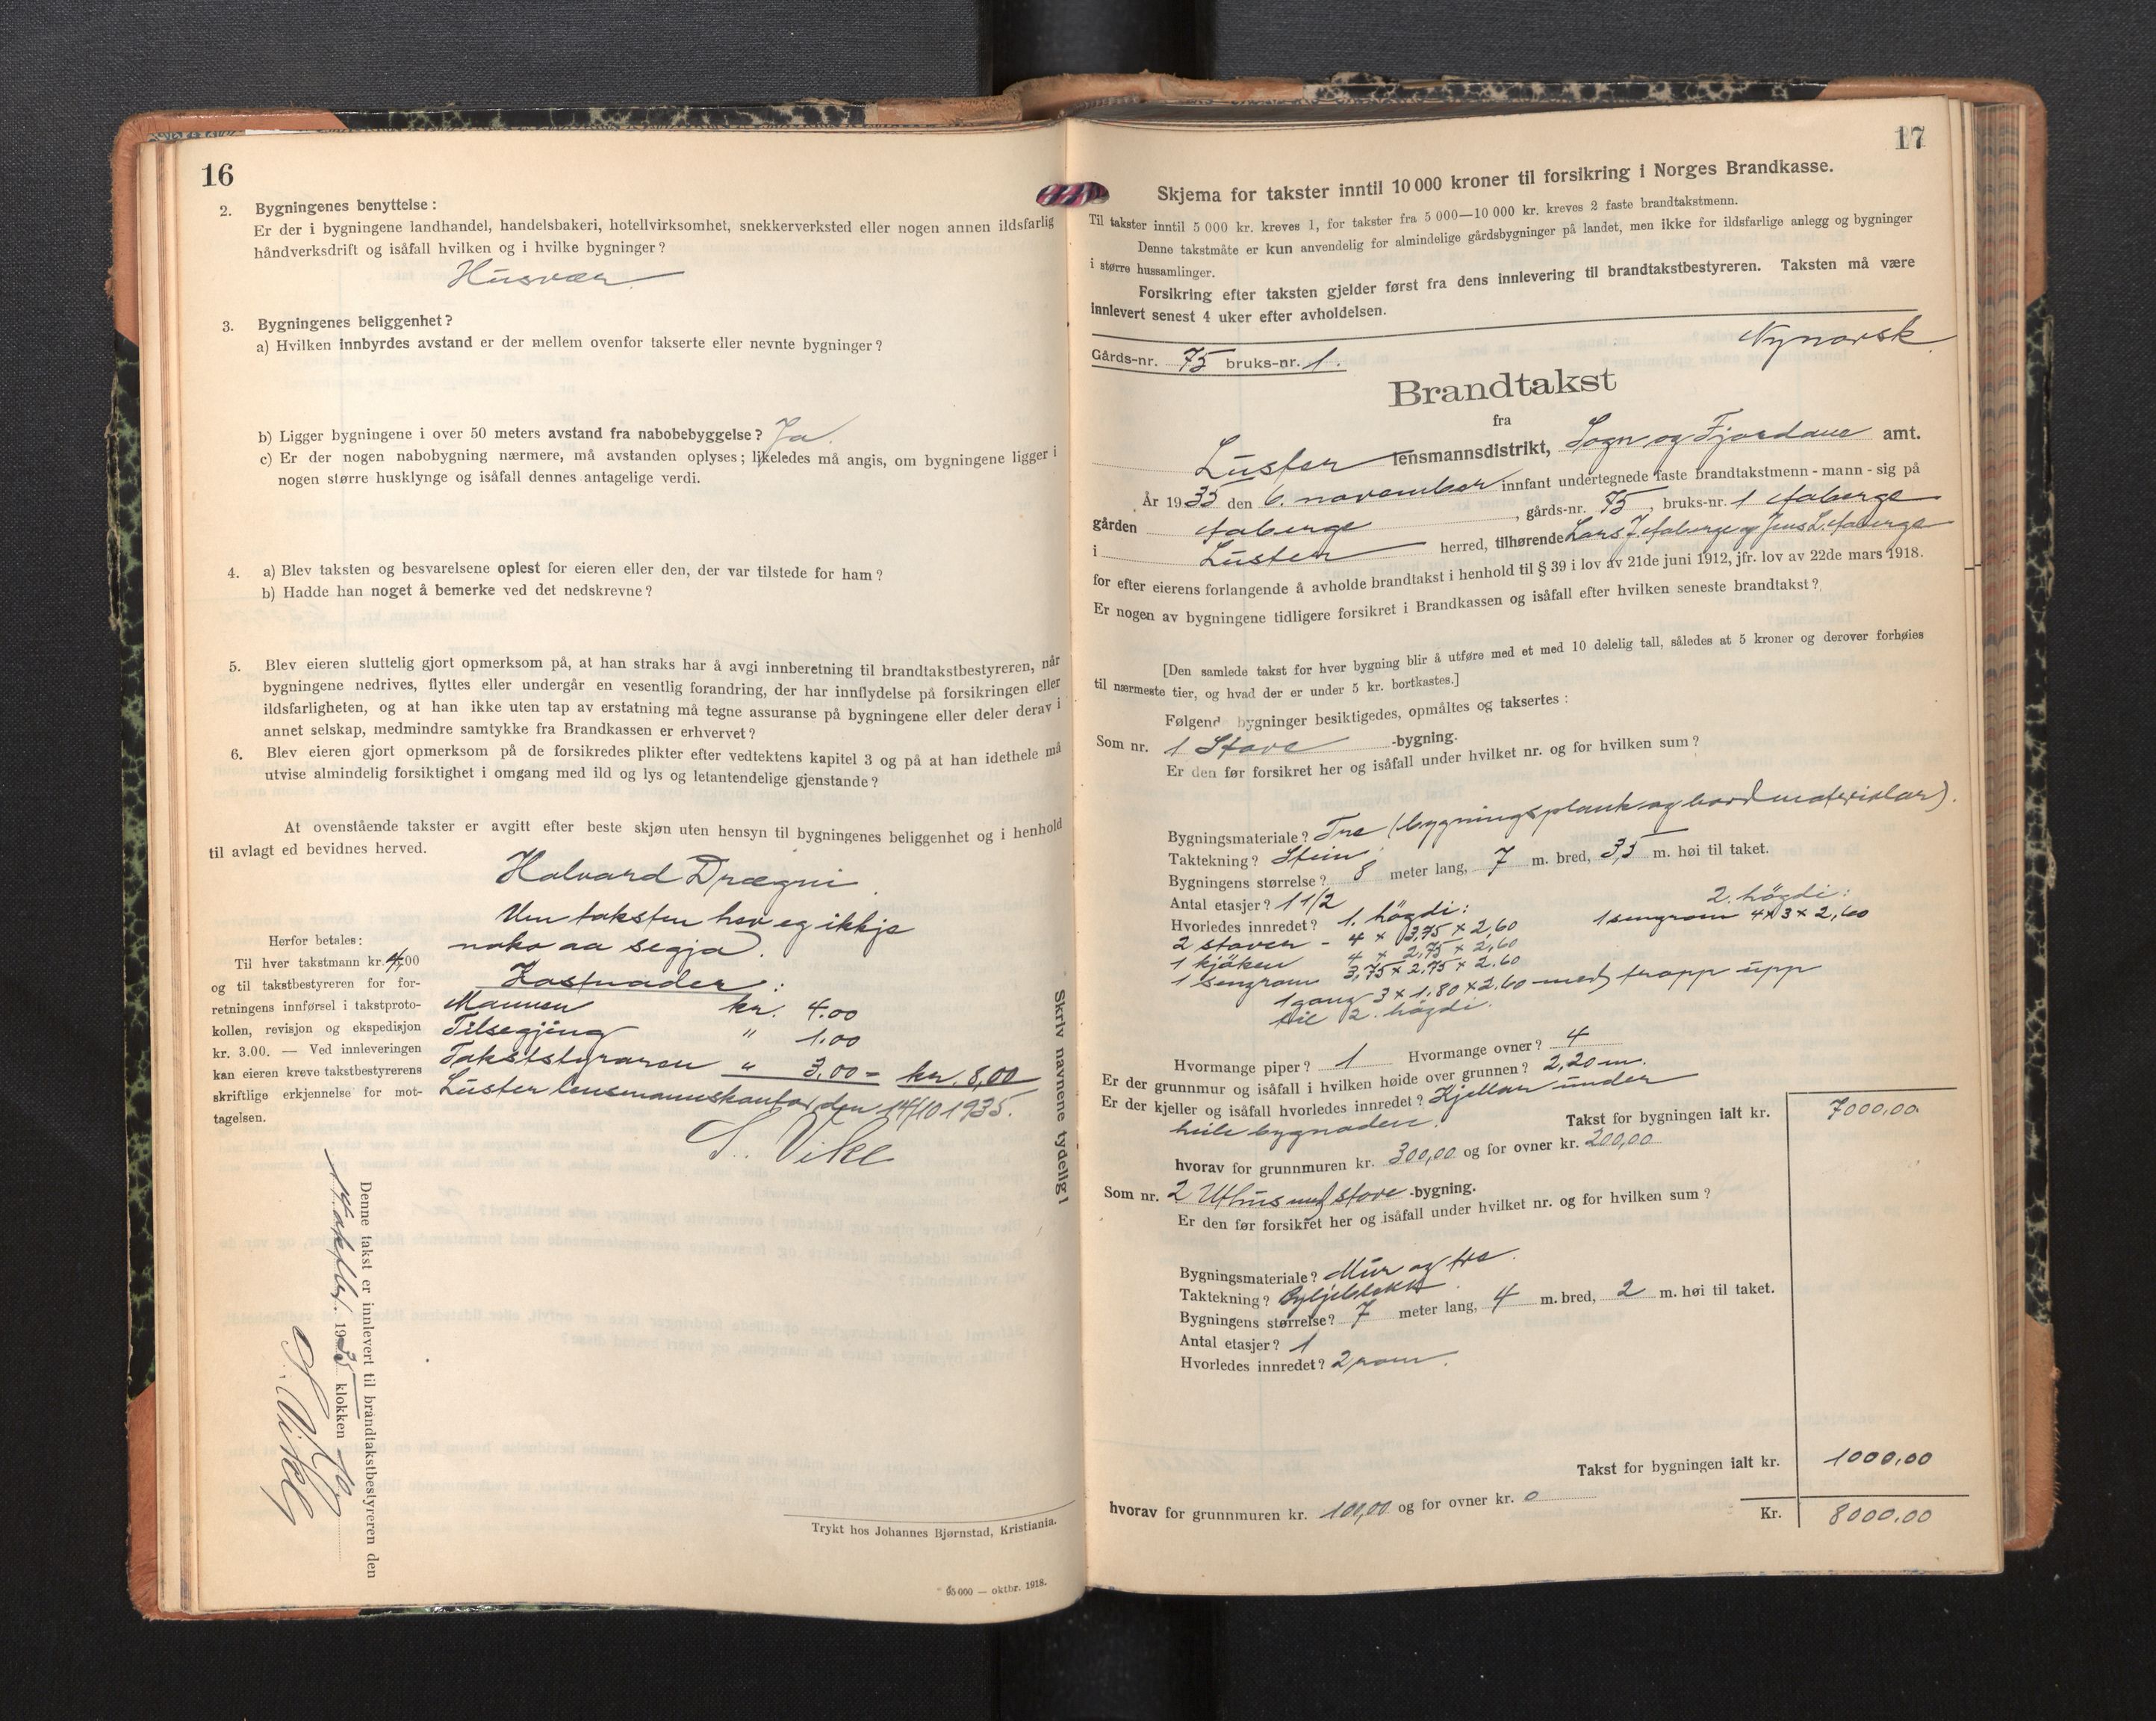 16
2. Bygningenes benyttelse:
Er der i bygningene landhandel, handelsbakeri, hotellvirksomhet, snekkerverksted eller nogen annen ildsfarlig
håndverksdrift og isåfall hvilken og i hvilke bygninger?
Husvær
3. Bygningenes beliggenhet?
a) Hvilken innbyrdes avstand er der mellem ovenfor takserte eller nevnte bygninger?
b) Ligger bygningene i over 50 meters avstand fra nabobebyggelse? Ja.
c) Er der nogen nabobygning nærmere, må avstanden oplyses; likeledes må angis, om bygningene ligger i
nogen større husklynge og isåfall dennes antagelige verdi.
4. a) Blev taksten og besvarelsene oplest for eieren eller den, der var tilstede for ham?
b) Hadde han noget å bemerke ved det nedskrevne?
5. Blev eieren sluttelig gjort opmerksom på, at han straks har å avgi innberetning til brandtakstbestyreren, når
bygningene nedrives, flyttes eller undergår en vesentlig forandring, der har innflydelse på forsikringen eller
ildsfarligheten, og at han ikke uten tap av erstatning må tegne assuranse på bygningene eller deler derav i
annet selskap, medmindre samtykke fra Brandkassen er erhvervet?
6. Blev eieren gjort opmerksom på de forsikredes plikter efter vedtektens kapitel 3 og på at han idethele må
utvise almindelig forsiktighet i omgang med ild og lys og letantendelige gjenstande?
At ovenstående takster er avgitt efter beste skjøn uten hensyn til bygningenes beliggenhet og i henhold
til avlagt ed bevidnes herved.
Halvard Drægni.
Um taksten hev eg ikkje
noko aa segja.
Kostnader:
Mannen kr. 4.00
Tilsegjing " 1.00
Takststyraren " 3.00 = kr. 8,00
Luster lensmannskontor, den 14/10 1935.
S. Vikl
Herfor betales:
Til hver takstmann kr. 4,00
og til takstbestyreren for for-
retningens innførsel i takstproto-
kollen, revisjon og ekspedisjon
kr. 3.00. — Ved innleveringen
kan eieren kreve takstbestyrerens
skriftlige erkjennelse for mot-
tagelsen.
Skriv navnene tydelig!
Denne takst er innlevert til brandtakstbestyreren den
14 oktbr. 1935 klokken
Trykt hos Johannes Bjørnstad, Kristiania.
95 000 — oktbr. 1918.
17
Skjema for takster inntil 10 000 kroner til forsikring i Norges Brandkasse.
Til takster inntil 5 000 kr. kreves 1, for takster fra 5 000—10 000 kr. kreves 2 faste brandtakstmenn.
Denne takstmåte er kun anvendelig for almindelige gårdsbygninger på landet, men ikke for ildsfarlige anlegg og bygninger
i større hussamlinger.
Forsikring efter taksten gjelder først fra dens innlevering til brandtakstbestyreren. Taksten må være
innlevert senest 4 uker efter avholdelsen.
Nynorsk.
Gårds-nr. 75 bruks-nr. 1.
Brandtakst
fra
Luster lensmannsdistrikt, Sogn og Fjordane amt.
År 1935 den 6. november innfant undertegnede faste brandtakstmenn - mann - sig på
gården Aaberge, gårds-nr. 75, bruks-nr. 1 Aaberge
i Luster herred, tilhørende Lars J. Aaberge og Jens L. Aaberge
for efter eierens forlangende å avholde brandtakst i henhold til § 39 i lov av 21de juni 1912, jfr. lov av 22de mars 1918.
Er nogen av bygningene tidligere forsikret i Brandkassen og isåfall efter hvilken seneste brandtakst?
[Den samlede takst for hver bygning blir å utføre med et med 10 delelig tall, således at 5 kroner og derover forhøies
til nærmeste tier, og hvad der er under 5 kr. bortkastes.]
Følgende bygninger besiktigedes, opmåltes og taksertes:
Som nr. 1 Stove -bygning.
Er den før forsikret her og isåfall under hvilket nr. og for hvilken sum?
Bygningsmateriale? Tre (bygningsplank og bordmaterialar).
Taktekning? Stein.
Bygningens størrelse? 8 meter lang, 7 m. bred, 3,5 m. høi til taket.
Antal etasjer? 1 1/2
Hvorledes innredet? 1. högdi: 2. högdi:
2 stover - 4 × 3,75 × 2,60 1 sengrom 4 × 3 × 2,60
1 kjöken 4 × 2,75 × 2,60
1 sengrom 3,75 × 2,75 × 2.60
1 gang 3 × 1,80 × 2.60 med trapp upp
til 2. högdi.
Hvormange piper? 1 Hvormange ovner? 4
Er der grunnmur og isåfall i hvilken høide over grunnen? 2,20 m.
Er der kjeller og isåfall hvorledes innredet? Kjellar under
heile bygnaden.
Takst for bygningen ialt kr. 7000,00
hvorav for grunnmuren kr. 300,00 og for ovner kr. 200,00
Som nr. 2 Uthus med stove -bygning.
Er den før forsikret her og isåfall under hvilket nr. og for hvilken sum?
Bygningsmateriale? Mur og tre.
Taktekning?
Bygningens størrelse? 7 meter lang, 4 m. bred, 2 m. høi til taket.
Antal etasjer? 1
Hvorledes innredet? 2 rom.
Takst for bygningen ialt kr. 1000,00
hvorav for grunnmuren kr. 100,00 og for ovner kr. 0
Kr. 8000,00